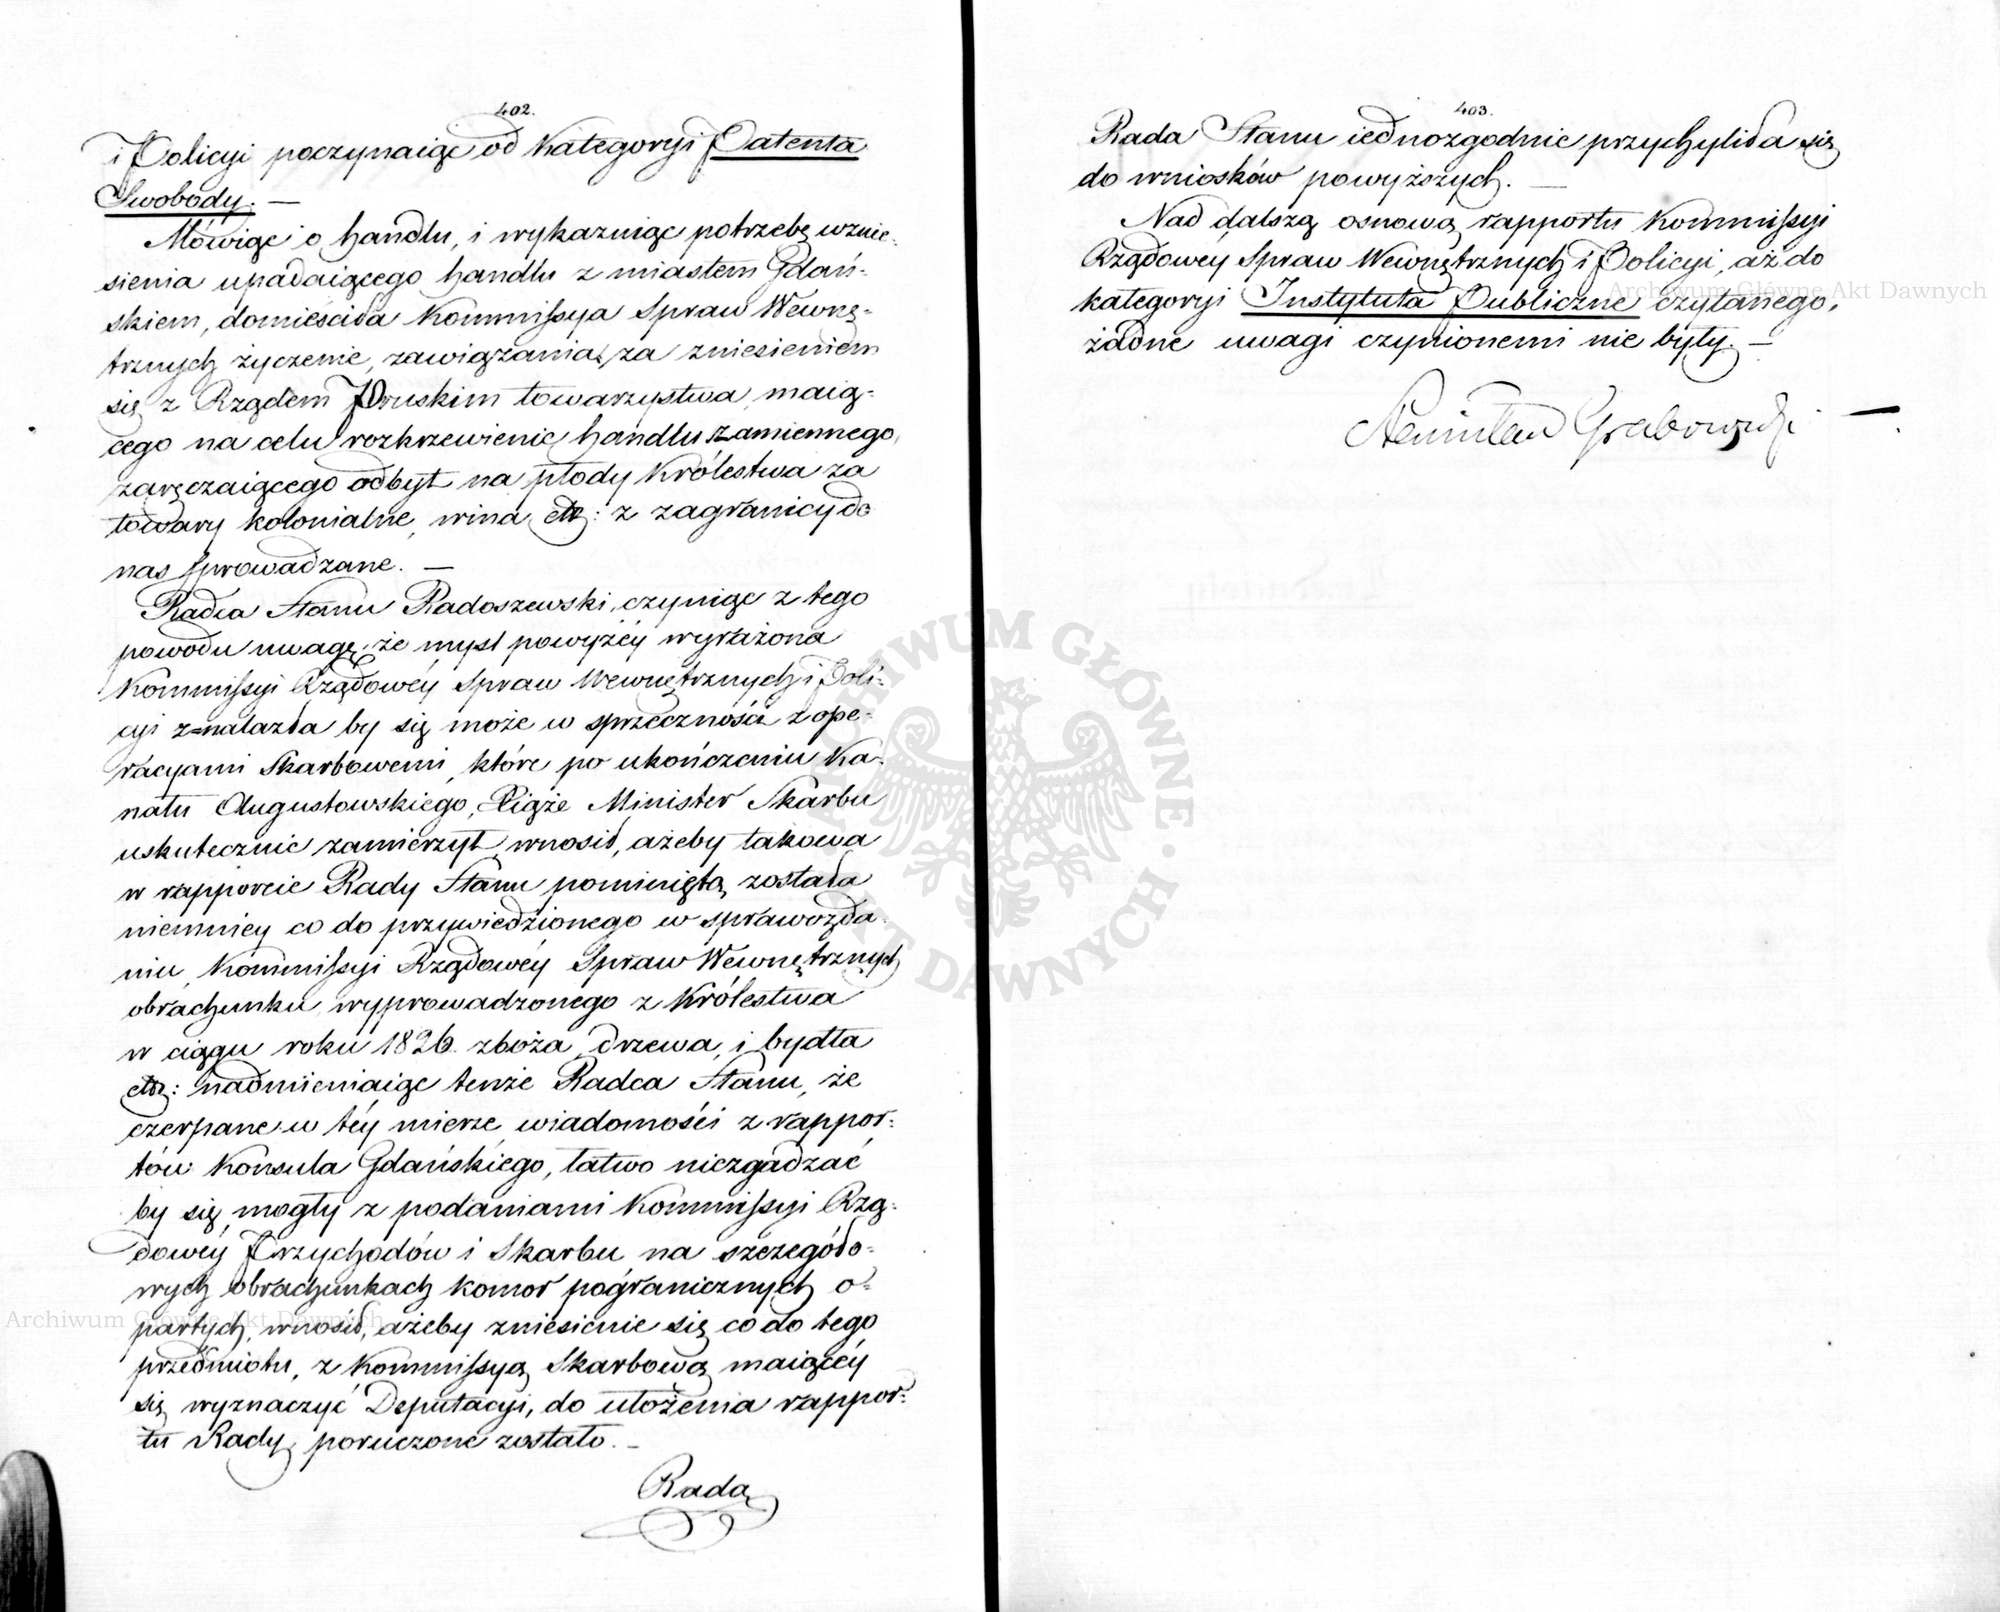 402.
i Policyi poczynaiąc od kategoryi Patenta
Swobody. —
Mówiąc o handlu, i wykazuiąc potrzebę wznie-
sienia upadaiącego handlu z miastem Gdań-
skiem, domieściła Kommissya Spraw Wewnę-
trznych życzenie, zawiązania, za zniesieniem
się z Rządem Pruskim towarzystwa, maią-
cego na celu rozkrzewienie handlu zamiennego,
zaręczaiącego odbyt na płody Królestwa za
towary kolonialne, wina etc: z zagranicy do
nas sprowadzane. —
Radca Stanu Radoszewski, czyniąc z tego
powodu uwagę, że myśl powyżéy wyrażona
Kommissyi Rządowéy Spraw Wewnętrznych i Poli-
cyi znalazła by się może w sprzeczności z ope-
racyami Skarbowemi, które po ukończeniu Ka-
nału Augustowskiego, Xiąże Minister Skarbu
uskutecznić zamierzył, wnosił, ażeby takowa
w rapporcie Rady Stanu pominiętą została
niemniey co do przywiedzionego w sprawozda-
niu Kommissyi Rządowéy Spraw Wewnętrznych
obrachunku, wyprowadzonego z Królestwa
w ciągu roku 1826. zboża, drzewa, i bydła
etc: nadmieniaiąc tenże Radca Stanu, że
czerpane w téy mierze wiadomości z rappor-
tów Konsula Gdańskiego, łatwo niezgadzać
by się mogły z podaniami Kommissyi Rzą-
dowéy Przychodów i Skarbu na szczegóło-
wych obrachunkach komor pogranicznych o-
partych, wnosił, ażeby zniesienie się co do tego
przedmiotu, z Kommissyą Skarbową maiącéy
się wyznaczyć Deputacyi, do ułożenia rappor-
tu Rady, poruczone zostało. —
Rada
403.
Rada Stanu iednozgodnie przychyliła się
do wniosków powyższych. —
Nad dalszą osnową rapportu Kommissyi
Rządowéy Spraw Wewnętrznych i Policyi, aż do
kategoryi Instytuta Publiczne czytanego,
żadne uwagi czynionemi nie były. —
Stanisław Grabowski
Archiwum Główne Akt Dawnych
Archiwum Główne Akt Dawnych
ARCHIWUM GŁÓWNE · AKT DAWNYCH ·